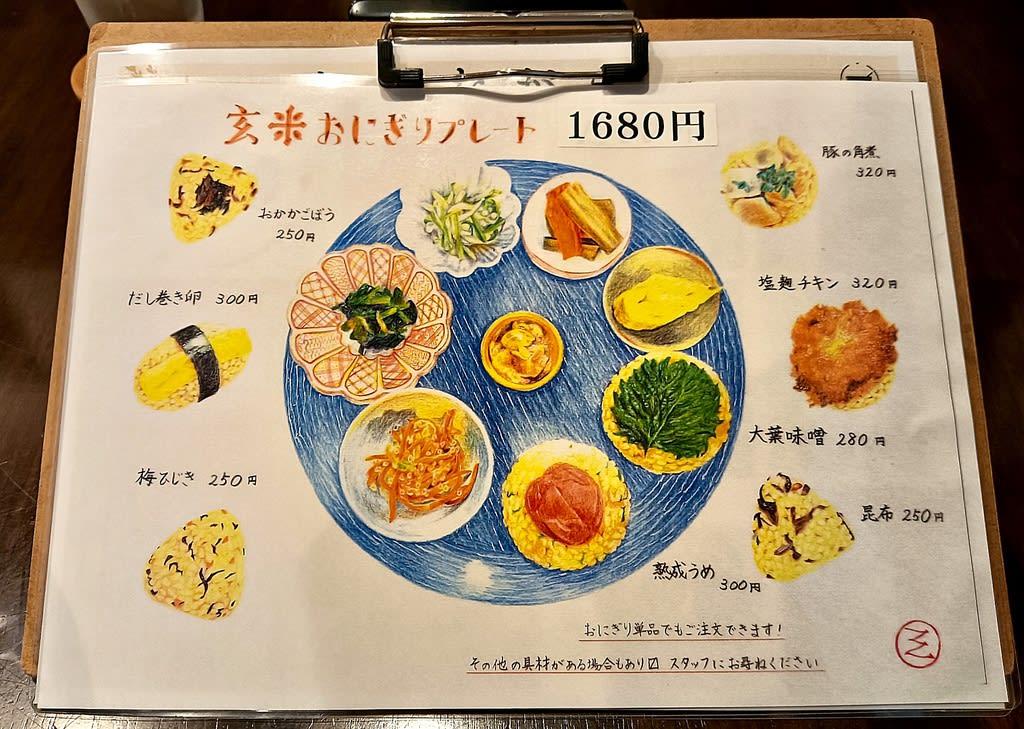 玄米おにぎりプレート 1680円
おかかごぼう
250円
だし巻き卵 300円
梅ひじき 250円
豚の角煮
320円
塩麹チキン 320円
大葉味噌 280円
昆布 250円
熟成うめ
300円
おにぎり単品でもご注文できます!
その他の具材がある場合もあり〼 スタッフにお尋ねください